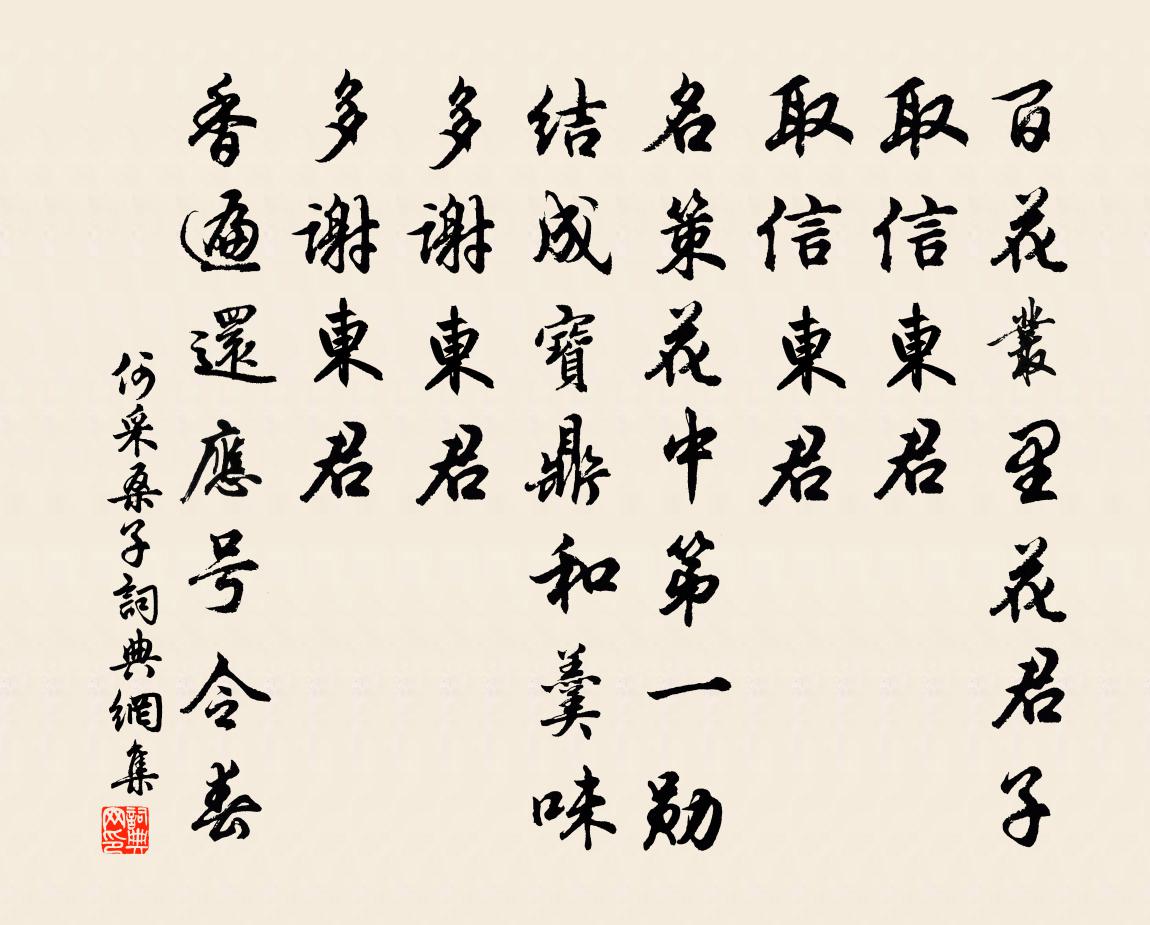 百花叢里花君子
取信東君
取信東君
名策花中第一勛
結成寶鼎和羹味
多謝東君
多謝東君
香遍還應号令春
何采桑子詞典網集
詞典网印